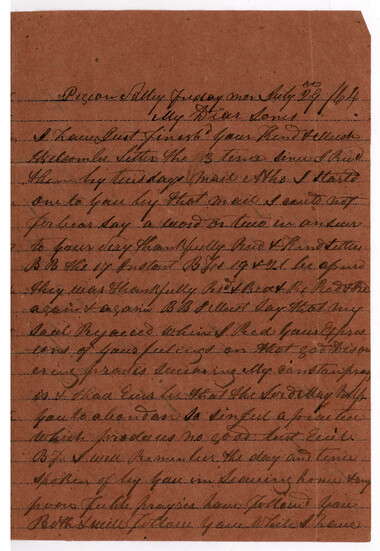 Pigeon Valley Friday mor July 29 /64
My Dear Sons
I have Just finish'd Your Kind & Much
Welcombe Letter the 3 time since I Recd
them by tuesdays mail Altho I started
one to you by that mail I could not
forbear say a word or two in answer
to your very thankfully Recd & Kind Letter
B B the 17 Instant B Jos 19 & 21 be assured
they war thankfully Recd & Read & Re Read & Re
again & again B B I Must Say that my
Soul Rejoiced when I Read Your Expres
ions of Your feelings on that god
My constan pray
is & shad Ever be that the Lord May help
You to abandon So sinful a practice
which produces no good but Evil
B Jo I will Remember the day and time
spoken of by You in Leaving home & my
poore feble prayers have followd You
Both & will follow You While I have